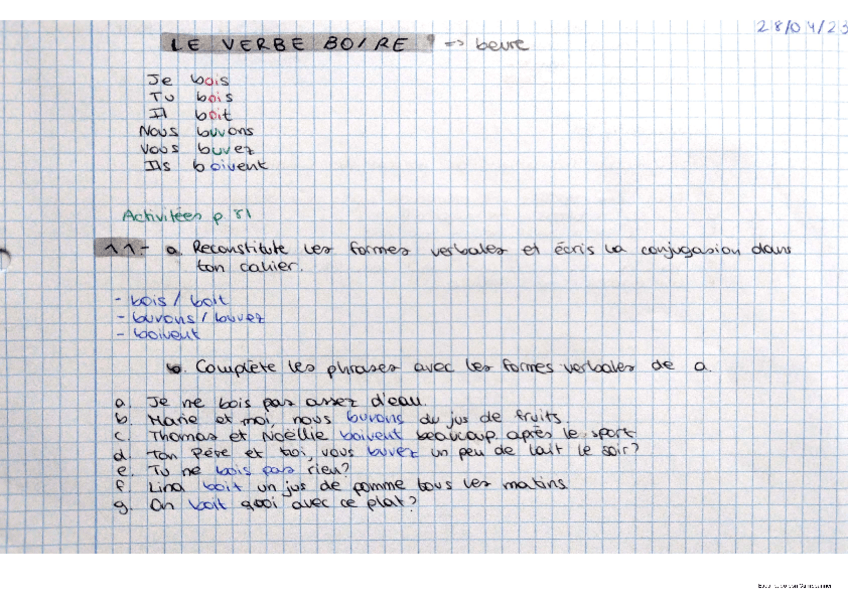 28/04/23
LE VERBE BOIRE => beure
Je bois
Tu bois
Il boit
Nous buvons
Vous buvez
Ils boivent
Activitées p. 81
11.- a. Reconstitute les formes verbales et écris la conjugasion dans
ton cahier.
- bois / boit
- buvons / buvez
- boivent
b. Complète les phrases avec les formes verbales de a.
a. Je ne bois pas assez d'eau.
b. Marie et moi, nous buvons du jus de fruits.
c. Thomas et Noëllie boivent beaucoup après le sport
d. Ton Père et toi, vous buvez un peu de lait le soir?
e. Tu ne bois pas rien?
f. Lina boit un jus de pomme tous les matins
g. On boit quoi avec ce plat?